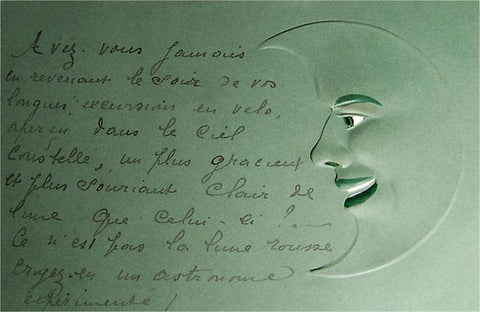 Avez-vous jamais
en revenant le soir de vos
longues excursions en velo,
aperçu dans le Ciel
Constellé, un plus gracieux
et plus souriant Clair de
lune que celui-ci ? —
Ce n'est pas la lune rousse
croyez-en un astronome
expérimenté !